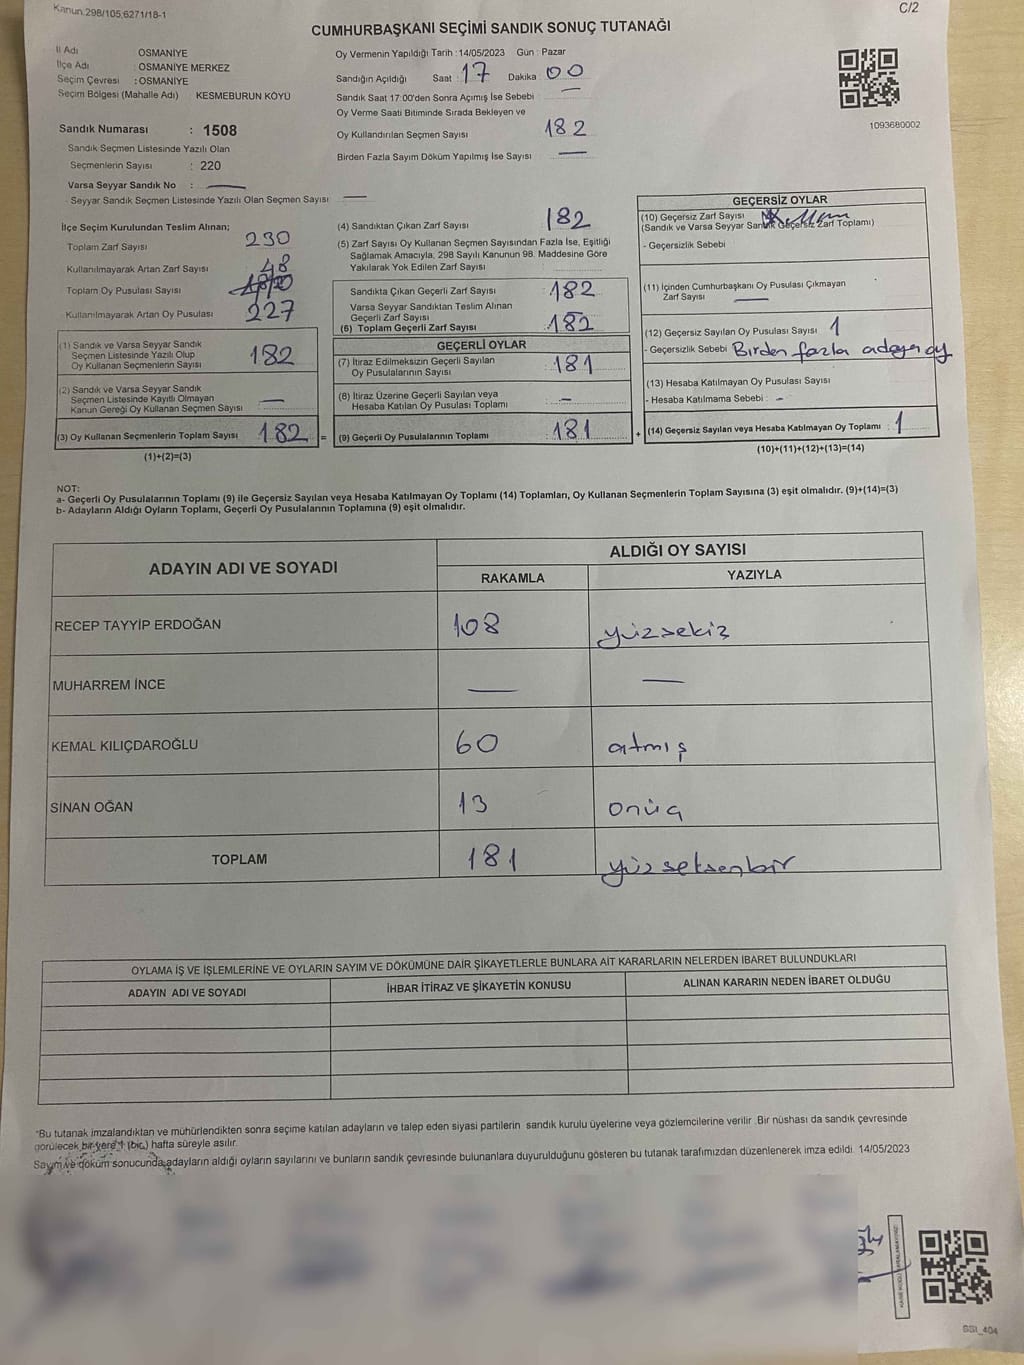 Kanun:298/105,6271/18-1
C/2
CUMHURBAŞKANI SEÇİMİ SANDIK SONUÇ TUTANAĞI
İl Adı OSMANİYE
İlçe Adı : OSMANİYE MERKEZ
Seçim Çevresi : OSMANİYE
Seçim Bölgesi (Mahalle Adı) KESMEBURUN KÖYÜ
Sandık Numarası : 1508
Sandık Seçmen Listesinde Yazılı Olan
Seçmenlerin Sayısı : 220
Varsa Seyyar Sandık No : —
- Seyyar Sandık Seçmen Listesinde Yazılı Olan Seçmen Sayısı —
Oy Vermenin Yapıldığı Tarih :14/05/2023 Gün : Pazar
Sandığın Açıldığı Saat : 17 Dakika : 00
Sandık Saat 17:00'den Sonra Açımış İse Sebebi : —
Oy Verme Saati Bitiminde Sırada Bekleyen ve
Oy Kullandırılan Seçmen Sayısı 182
Birden Fazla Sayım Döküm Yapılmış İse Sayısı —
1093680002
İlçe Seçim Kurulundan Teslim Alınan;
Toplam Zarf Sayısı 230
Kullanılmayarak Artan Zarf Sayısı 48
Toplam Oy Pusulası Sayısı
Kullanılmayarak Artan Oy Pusulası 227
(1) Sandık ve Varsa Seyyar Sandık
Seçmen Listesinde Yazılı Olup
Oy Kullanan Seçmenlerin Sayısı 182
(2) Sandık ve Varsa Seyyar Sandık
Seçmen Listesinde Kayıtlı Olmayan
Kanun Gereği Oy Kullanan Seçmen Sayısı —
(3) Oy Kullanan Seçmenlerin Toplam Sayısı 182 =
(1)+(2)=(3)
(4) Sandıktan Çıkan Zarf Sayısı 182
(5) Zarf Sayısı Oy Kullanan Seçmen Sayısından Fazla İse, Eşitliği
Sağlamak Amacıyla, 298 Sayılı Kanunun 98. Maddesine Göre
Yakılarak Yok Edilen Zarf Sayısı
Sandıkta Çıkan Geçerli Zarf Sayısı : 182
Varsa Seyyar Sandıktan Teslim Alınan
Geçerli Zarf Sayısı : —
(6) Toplam Geçerli Zarf Sayısı : 182
GEÇERLİ OYLAR
(7) İtiraz Edilmeksizin Geçerli Sayılan
Oy Pusulalarının Sayısı : 181
(8) İtiraz Üzerine Geçerli Sayılan veya
Hesaba Katılan Oy Pusulası Toplamı : —
(9) Geçerli Oy Pusulalarının Toplamı : 181 +
GEÇERSİZ OYLAR
(10) Geçersiz Zarf Sayısı
(Sandık ve Varsa Seyyar Sandık Geçersiz Zarf Toplamı)
- Geçersizlik Sebebi
(11) İçinden Cumhurbaşkanı Oy Pusulası Çıkmayan
Zarf Sayısı —
(12) Geçersiz Sayılan Oy Pusulası Sayısı : 1
- Geçersizlik Sebebi : Birden fazla adaya oy
(13) Hesaba Katılmayan Oy Pusulası Sayısı
- Hesaba Katılmama Sebebi : —
(14) Geçersiz Sayılan veya Hesaba Katılmayan Oy Toplamı : 1
(10)+(11)+(12)+(13)=(14)
NOT:
a- Geçerli Oy Pusulalarının Toplamı (9) ile Geçersiz Sayılan veya Hesaba Katılmayan Oy Toplamı (14) Toplamları, Oy Kullanan Seçmenlerin Toplam Sayısına (3) eşit olmalıdır. (9)+(14)=(3)
b- Adayların Aldığı Oyların Toplamı, Geçerli Oy Pusulalarının Toplamına (9) eşit olmalıdır.
ADAYIN ADI VE SOYADI
ALDIĞI OY SAYISI
RAKAMLA YAZIYLA
RECEP TAYYİP ERDOĞAN 108 yüzsekiz
MUHARREM İNCE — —
KEMAL KILIÇDAROĞLU 60 atmış
SİNAN OĞAN 13 onüç
TOPLAM 181 yüzseksenbir
OYLAMA İŞ VE İŞLEMLERİNE VE OYLARIN SAYIM VE DÖKÜMÜNE DAİR ŞİKAYETLERLE BUNLARA AİT KARARLARIN NELERDEN İBARET BULUNDUKLARI
ADAYIN ADI VE SOYADI İHBAR İTİRAZ VE ŞİKAYETİN KONUSU ALINAN KARARIN NEDEN İBARET OLDUĞU
*Bu tutanak imzalandıktan ve mühürlendikten sonra seçime katılan adayların ve talep eden siyasi partilerin sandık kurulu üyelerine veya gözlemcilerine verilir. Bir nüshası da sandık çevresinde
görülecek bir yere 1 (bir) hafta süreyle asılır.
Sayım ve döküm sonucunda adayların aldığı oyların sayılarını ve bunların sandık çevresinde bulunanlara duyurulduğunu gösteren bu tutanak tarafımızdan düzenlenerek imza edildi. 14/05/2023
SSI_404